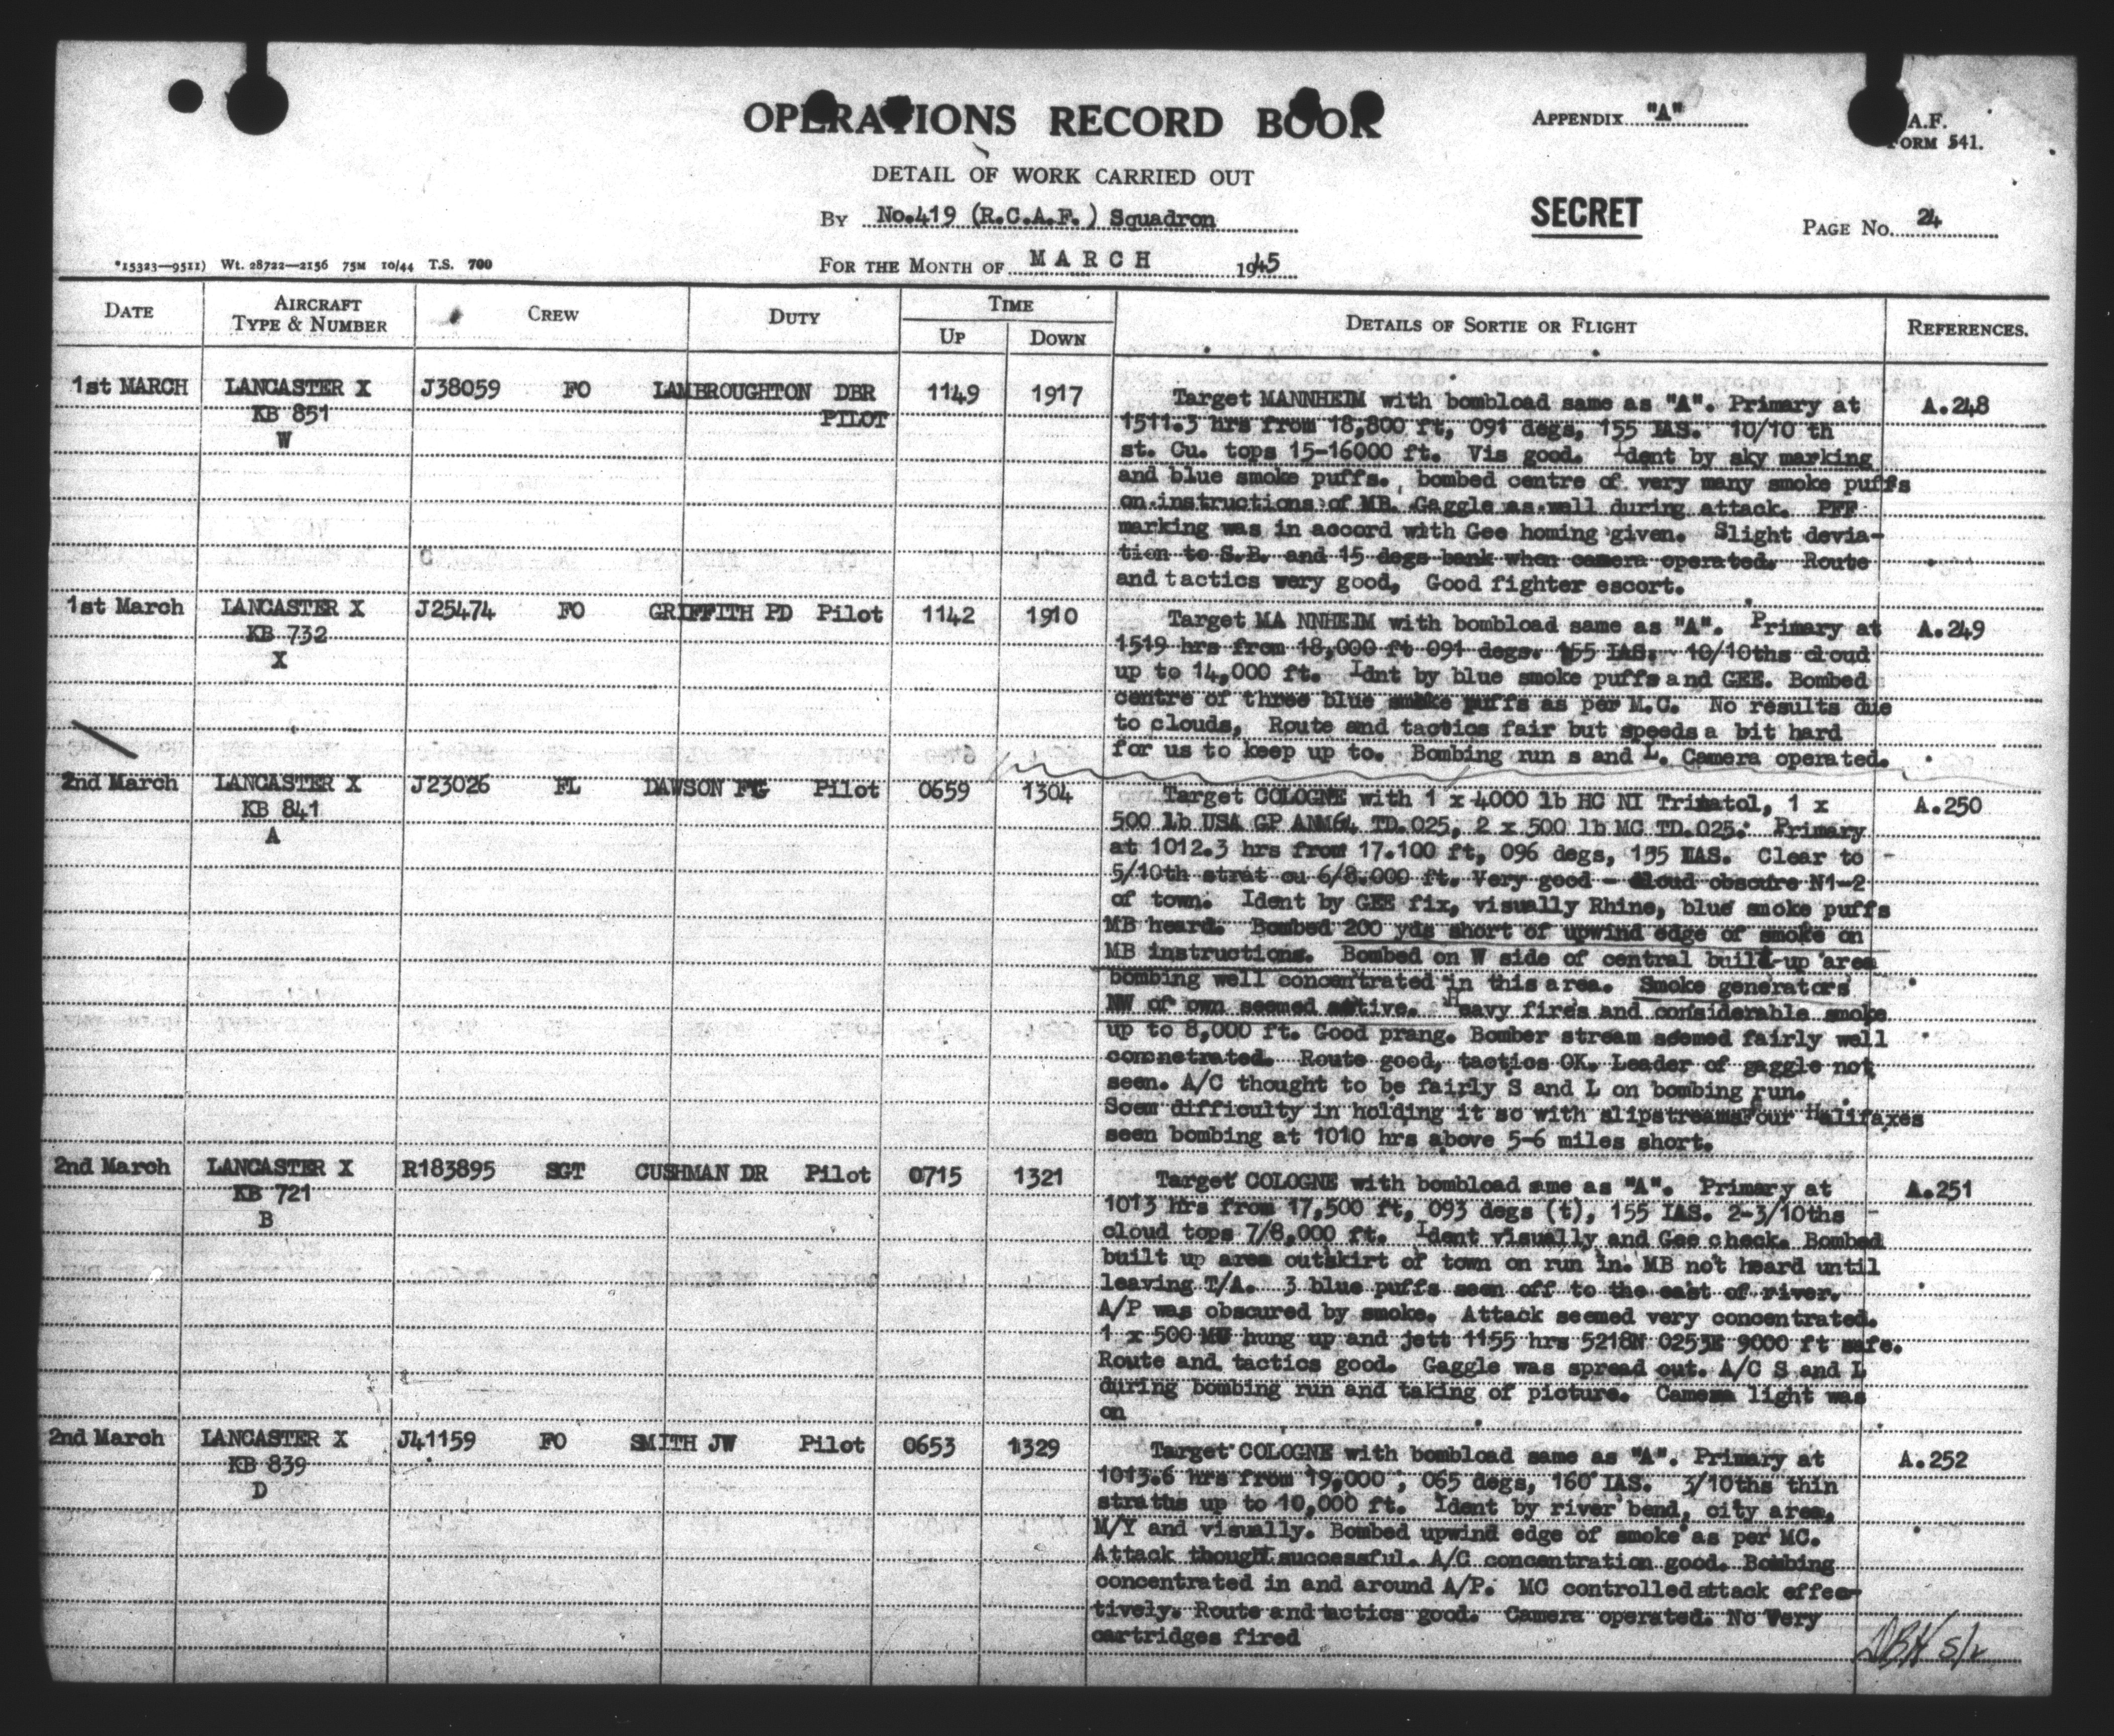 OPERATIONS RECORD BOOK
APPENDIX "A"
A.F.
FORM 541.
DETAIL OF WORK CARRIED OUT
By No.419 (R.C.A.F.) Squadron
SECRET
PAGE No. 24
*15323—9511) Wt. 28722—2156 75M 10/44 T.S. 700
FOR THE MONTH OF MARCH 1945
DATE AIRCRAFT TYPE & NUMBER CREW DUTY TIME UP DOWN DETAILS OF SORTIE OR FLIGHT REFERENCES.
1st MARCH LANCASTER X J38059 FO LAMBROUGHTON DBR 1149 1917
KB 851 PILOT
W
Target MANNHEIM with bombload same as "A". Primary at A.248
1511.3 hrs from 18,800 ft, 091 degs, 155 IAS. 10/10 th
st. Cu. tops 15-16000 ft. Vis good. Ident by sky marking
and blue smoke puffs. bombed centre of very many smoke puffs
on instructions of MB. Gaggle as well during attack. PFF
marking was in accord with Gee homing given. Slight devia-
tion to S.B. and 15 degs bank when camera operated. Route
and tactics very good, Good fighter escort.
1st March LANCASTER X J25474 FO GRIFFITH PD Pilot 1142 1910
KB 732
X
Target MA NNHEIM with bombload same as "A". Primary at A.249
1519 hrs from 18,000 ft 091 degs. 155 IAS. 10/10ths cloud
up to 14,000 ft. Idnt by blue smoke puffs and GEE. Bombed
centre of three blue smoke puffs as per M.C. No results due
to clouds, Route and tactics fair but speeds a bit hard
for us to keep up to. Bombing run s and L. Camera operated.
2nd March LANCASTER X J23026 FL DAWSON FG Pilot 0659 1304
KB 841
A
Target COLOGNE with 1 x 4000 lb HC NI Trimatol, 1 x A.250
500 lb USA GP ANM64 TD.025, 2 x 500 lb MC TD.025. Primary
at 1012.3 hrs from 17.100 ft, 096 degs, 155 IAS. Clear to
5/10th strat cu 6/8.000 ft. Very good - cloud obscure N1-2
of town. Ident by GEE fix, visually Rhine, blue smoke puffs
MB heard. Bombed 200 yds short of upwind edge of smoke on
MB instructions. Bombed on W side of central built-up area
bombing well concentrated in this area. Smoke generators
NW of own seemed active. Heavy fires and considerable smoke
up to 8,000 ft. Good prang. Bomber stream seemed fairly well
conцnetrated. Route good, tactics OK. Leader of gaggle not
seen. A/C thought to be fairly S and L on bombing run.
Soem difficulty in holding it so with slipstreamsFour Halifaxes
seen bombing at 1010 hrs above 5-6 miles short.
2nd March LANCASTER X R183895 SGT CUSHMAN DR Pilot 0715 1321
KB 721
B
Target COLOGNE with bombload ame as "A". Primary at A.251
1013 hrs from 17,500 ft, 093 degs (t), 155 IAS. 2-3/10ths
cloud tops 7/8,000 ft. Ident visually and Gee check. Bombed
built up area outskirt of town on run in. MB not heard until
leaving T/A. 3 blue puffs seen off to the east of river.
A/P was obscured by smoke. Attack seemed very concentrated.
1 x 500 hung up and jett 1155 hrs 5218N 0253E 9000 ft safe.
Route and tactics good. Gaggle was spread out. A/C S and L
during bombing run and taking of picture. Camera light was
on
2nd March LANCASTER X J41159 FO SMITH JW Pilot 0653 1329
KB 839
D
Target COLOGNE with bombload same as "A". Primary at A.252
1013.6 hrs from 19,000 ; 065 degs, 160 IAS. 3/10ths thin
stratus up to 10,000 ft. Ident by river bend, city area,
M/Y and visually. Bombed upwind edge of smoke as per MC.
Attack though successful. A/C concentration good. Bombing
concentrated in and around A/P. MC controlled attack effec-
tively. Route and tactics good. Camera operated. No Very
cartridges fired